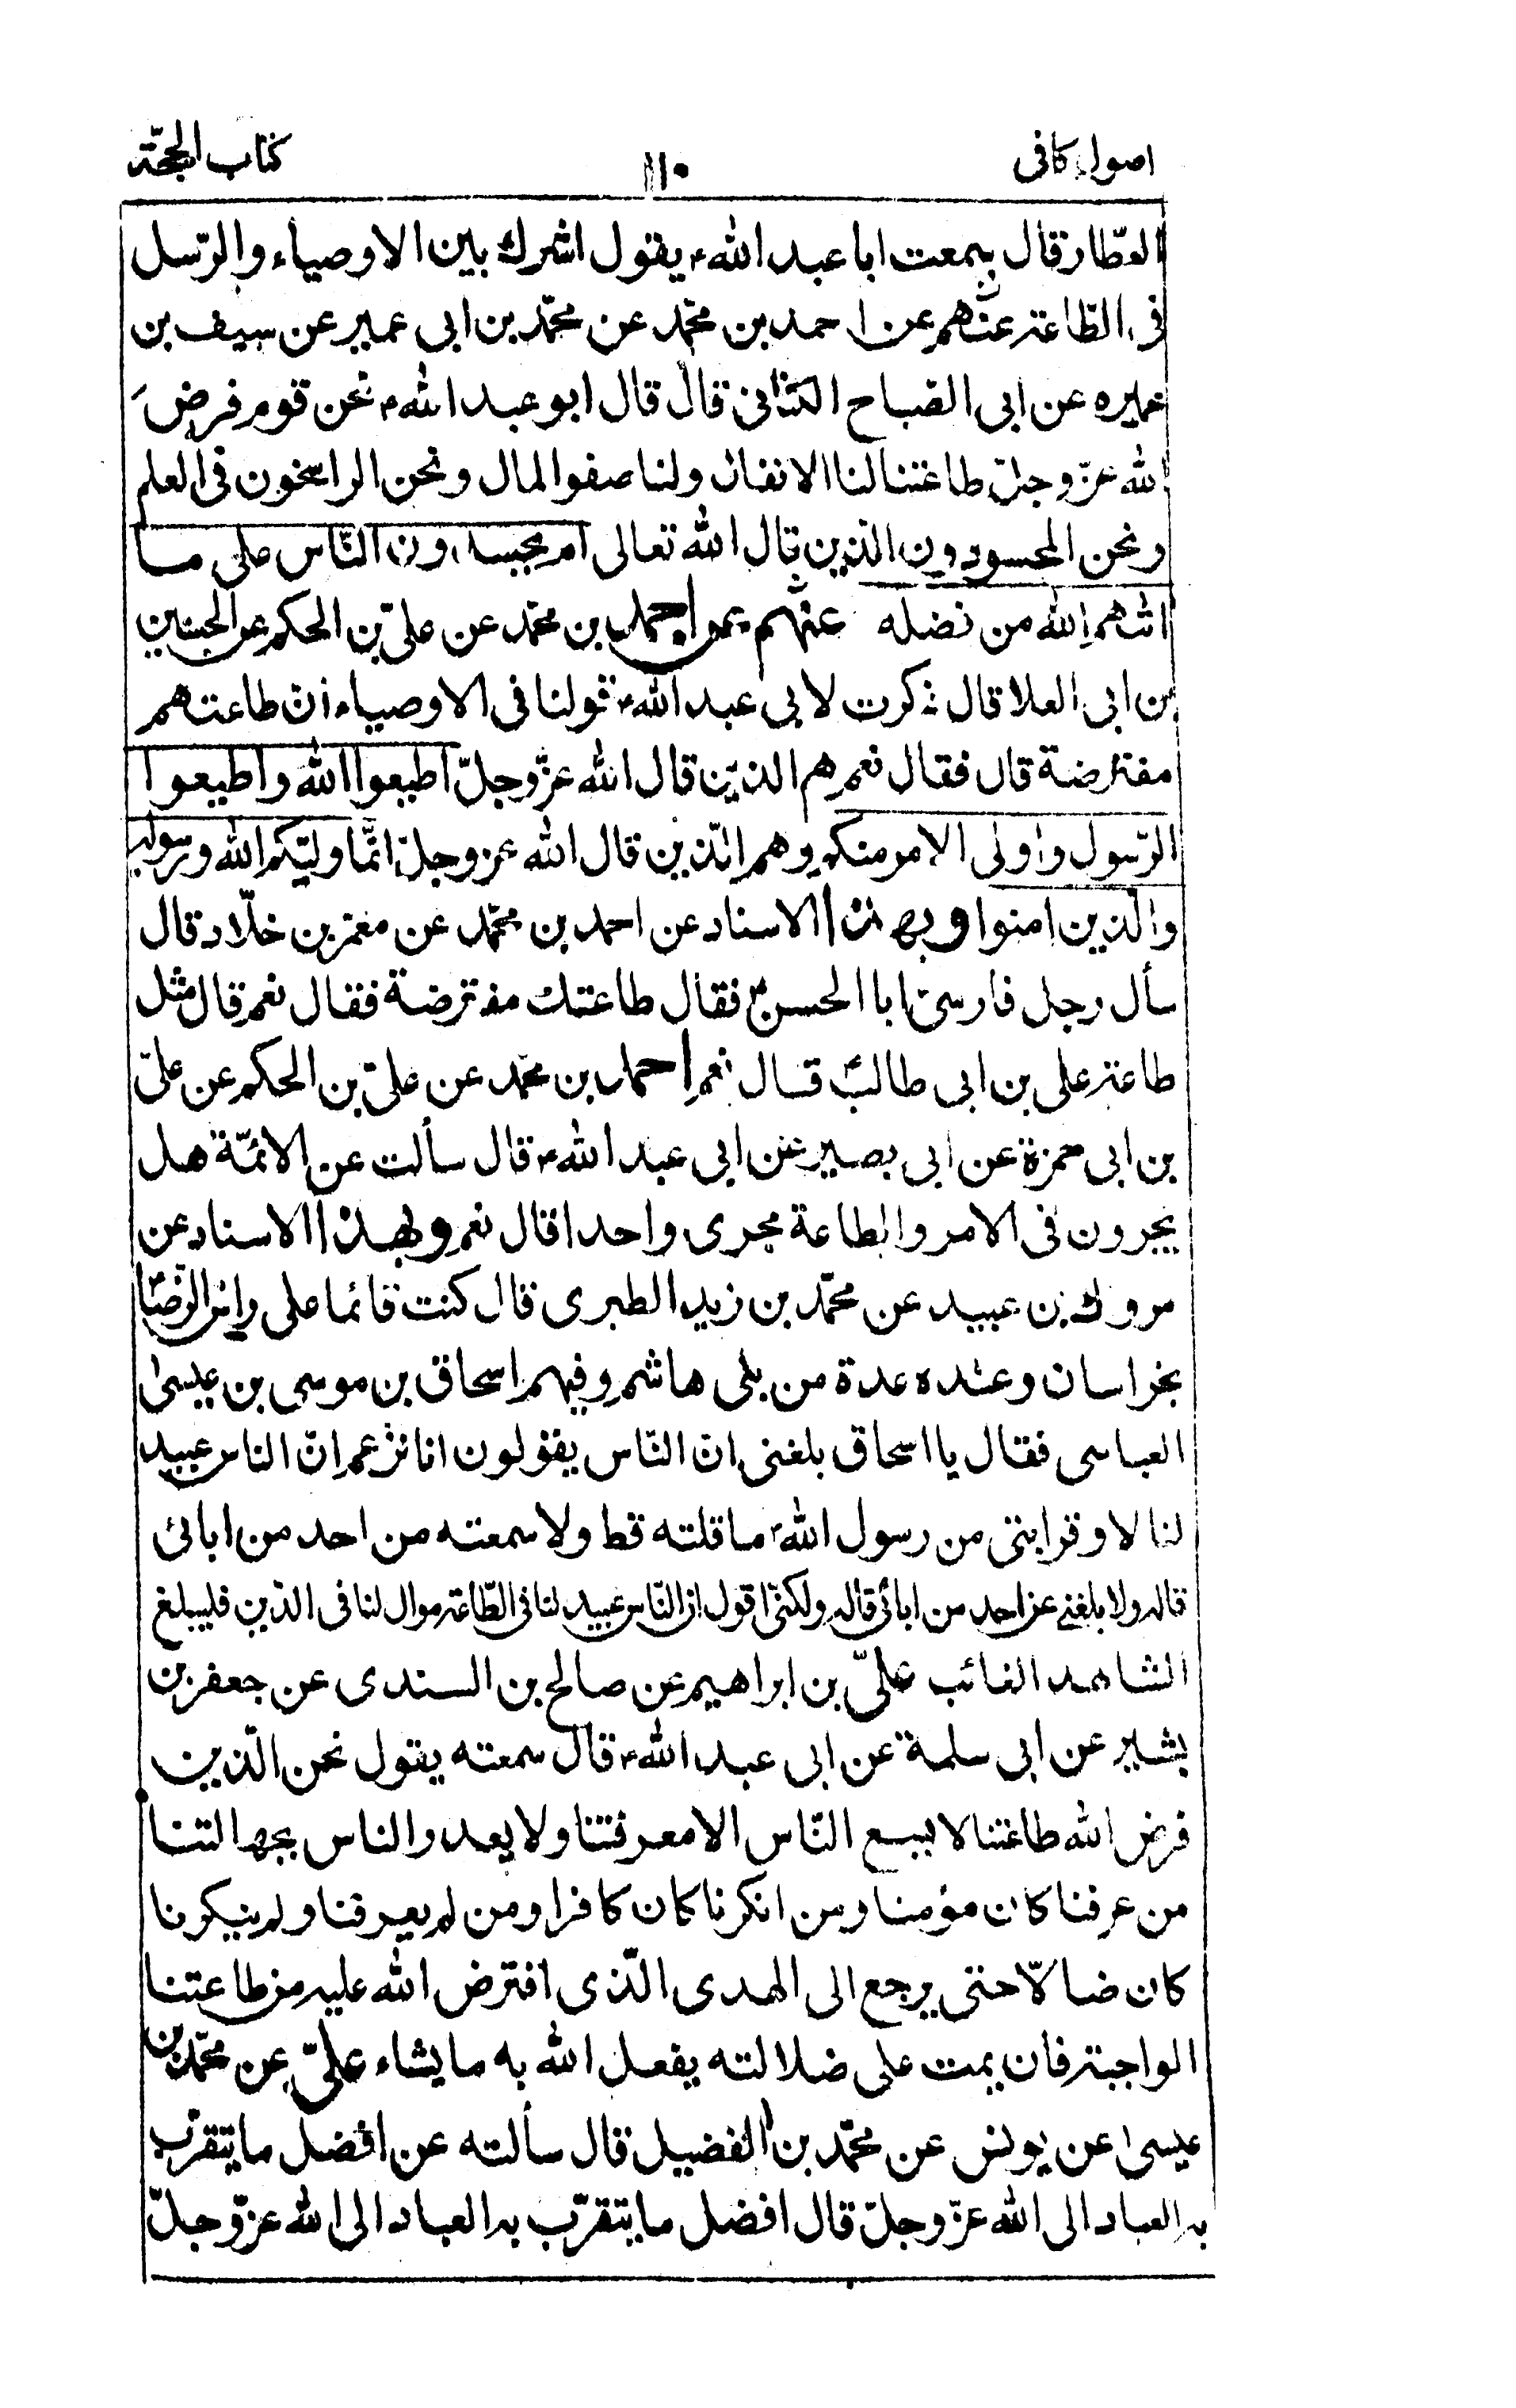 اصول كافى ١١٠ كتاب الحجّة
العطّار قال سمعت ابا عبد اللهؑ يقول اشرك بين الاوصياء والرّسل
فى الطّاعة عنهم عن احمد بن محمّد عن محمّد بن ابى عمير عن سيف بن
عميره عن ابى الصّباح الكنانى قال قال ابو عبد اللهؑ نحن قوم فرض
الله عزّ وجلّ طاعتنا لنا الانفال ولنا صفو المال ونحن الراسخون فى العلم
ونحن المحسودون الذين قال الله تعالى ام يحسدون النّاس على ما
اتٰهم الله من فضله عنهم عن احمد بن محمّد عن علىّ بن الحكم عن الحسين
بن ابى العلا قال ذكرت لابى عبد اللهؑ قولنا فى الاوصياء ان طاعتهم
مفترضة قال فقال نعم هم الذين قال الله عزّ وجلّ اطيعوا الله واطيعوا
الرّسول واولى الامر منكم وهم الّذين قال الله عزوجلّ انّما وليّكم الله ورسوله
والّذين امنوا وبهذا الاسناد عن احمد بن محمّد عن معمر بن خلّاد قال
سأل رجل فارسىّ ابا الحسنؑ فقال طاعتك مفترضة فقال نعم قال مثل
طاعة على بن ابى طالبؑ قال نعم احمد بن محمّد عن علىّ بن الحكم عن علىّ
بن ابى حمزة عن ابى بصير عن ابى عبد اللهؑ قال سألت عن الائمّة هل
يجرون فى الامر والطاعة مجرى واحدا قال نعم وبهذا الاسناد عن
مروك بن عبيد عن محمّد بن زيد الطبرى قال كنت قائما على راس الرّضاؑ
بخراسان وعنده عدة من بنى هاشم وفيهم اسحاق بن موسى بن عيسىٰ
العباسى فقال يا اسحاق بلغنى ان النّاس يقولون انا نزعم انّ الناس عبيد
لنا لا وقرابتى من رسول اللهؐ ما قلته قط ولا سمعته من احد من ابائى
قاله ولا بلغنى عن احد من ابائى قاله ولكنّى اقول ان النّاس عبيد لنا فى الطّاعة موال لنا فى الدّين فليبلغ
الشاهد الغائب علىّ بن ابراهيم عن صالح بن السندى عن جعفر بن
بشير عن ابى سلمة عن ابى عبد اللهؑ قال سمعته يقول نحن الّذين
فرض الله طاعتنا لا يسع النّاس الا معرفتنا ولا يعذر الناس بجهالتنا
من عرفنا كان مؤمنا ومن انكرنا كان كافرا ومن لم يعرفنا ولم ينكرنا
كان ضالّا حتى يرجع الى الهدى الّذى افترض الله عليه من طاعتنا
الواجبة فان يمت على ضلالته يفعل الله به ما يشاء علىّ عن محمّد بن
عيسىٰ عن يونس عن محمّد بن الفضيل قال سألته عن افضل ما يتقرّب
به العباد الى الله عزّ وجلّ قال افضل ما يتقرّب به العباد الى الله عزّ وجلّ